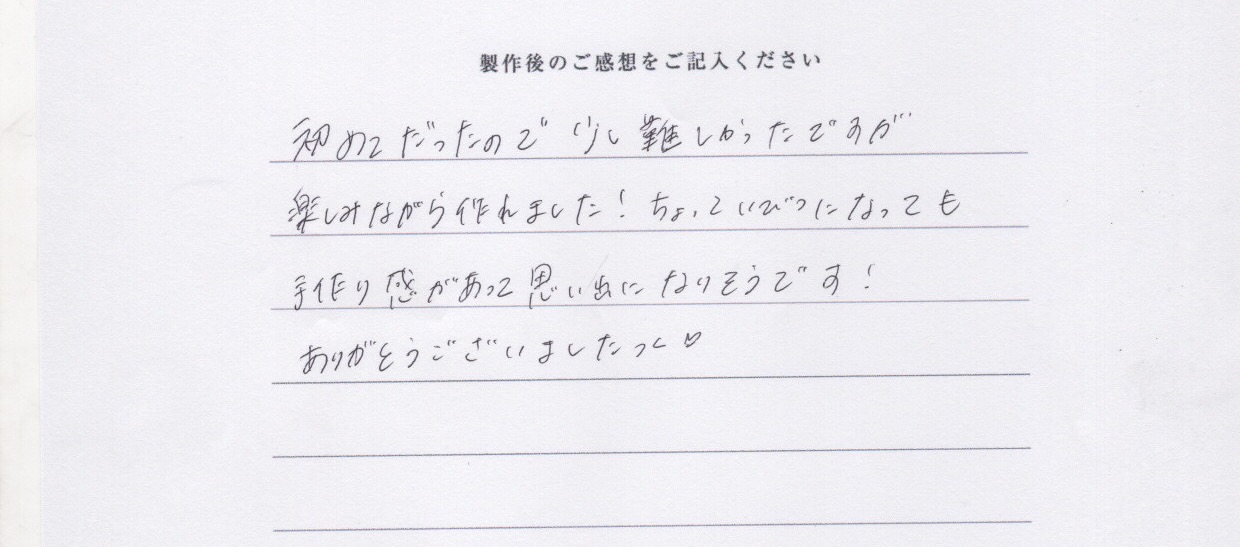 製作後のご感想をご記入ください
初めてだったので少し難しかったですが
楽しみながら作れました！ちょっといびつになっても
手作り感があって思い出になりそうです！
ありがとうございましたっ♡